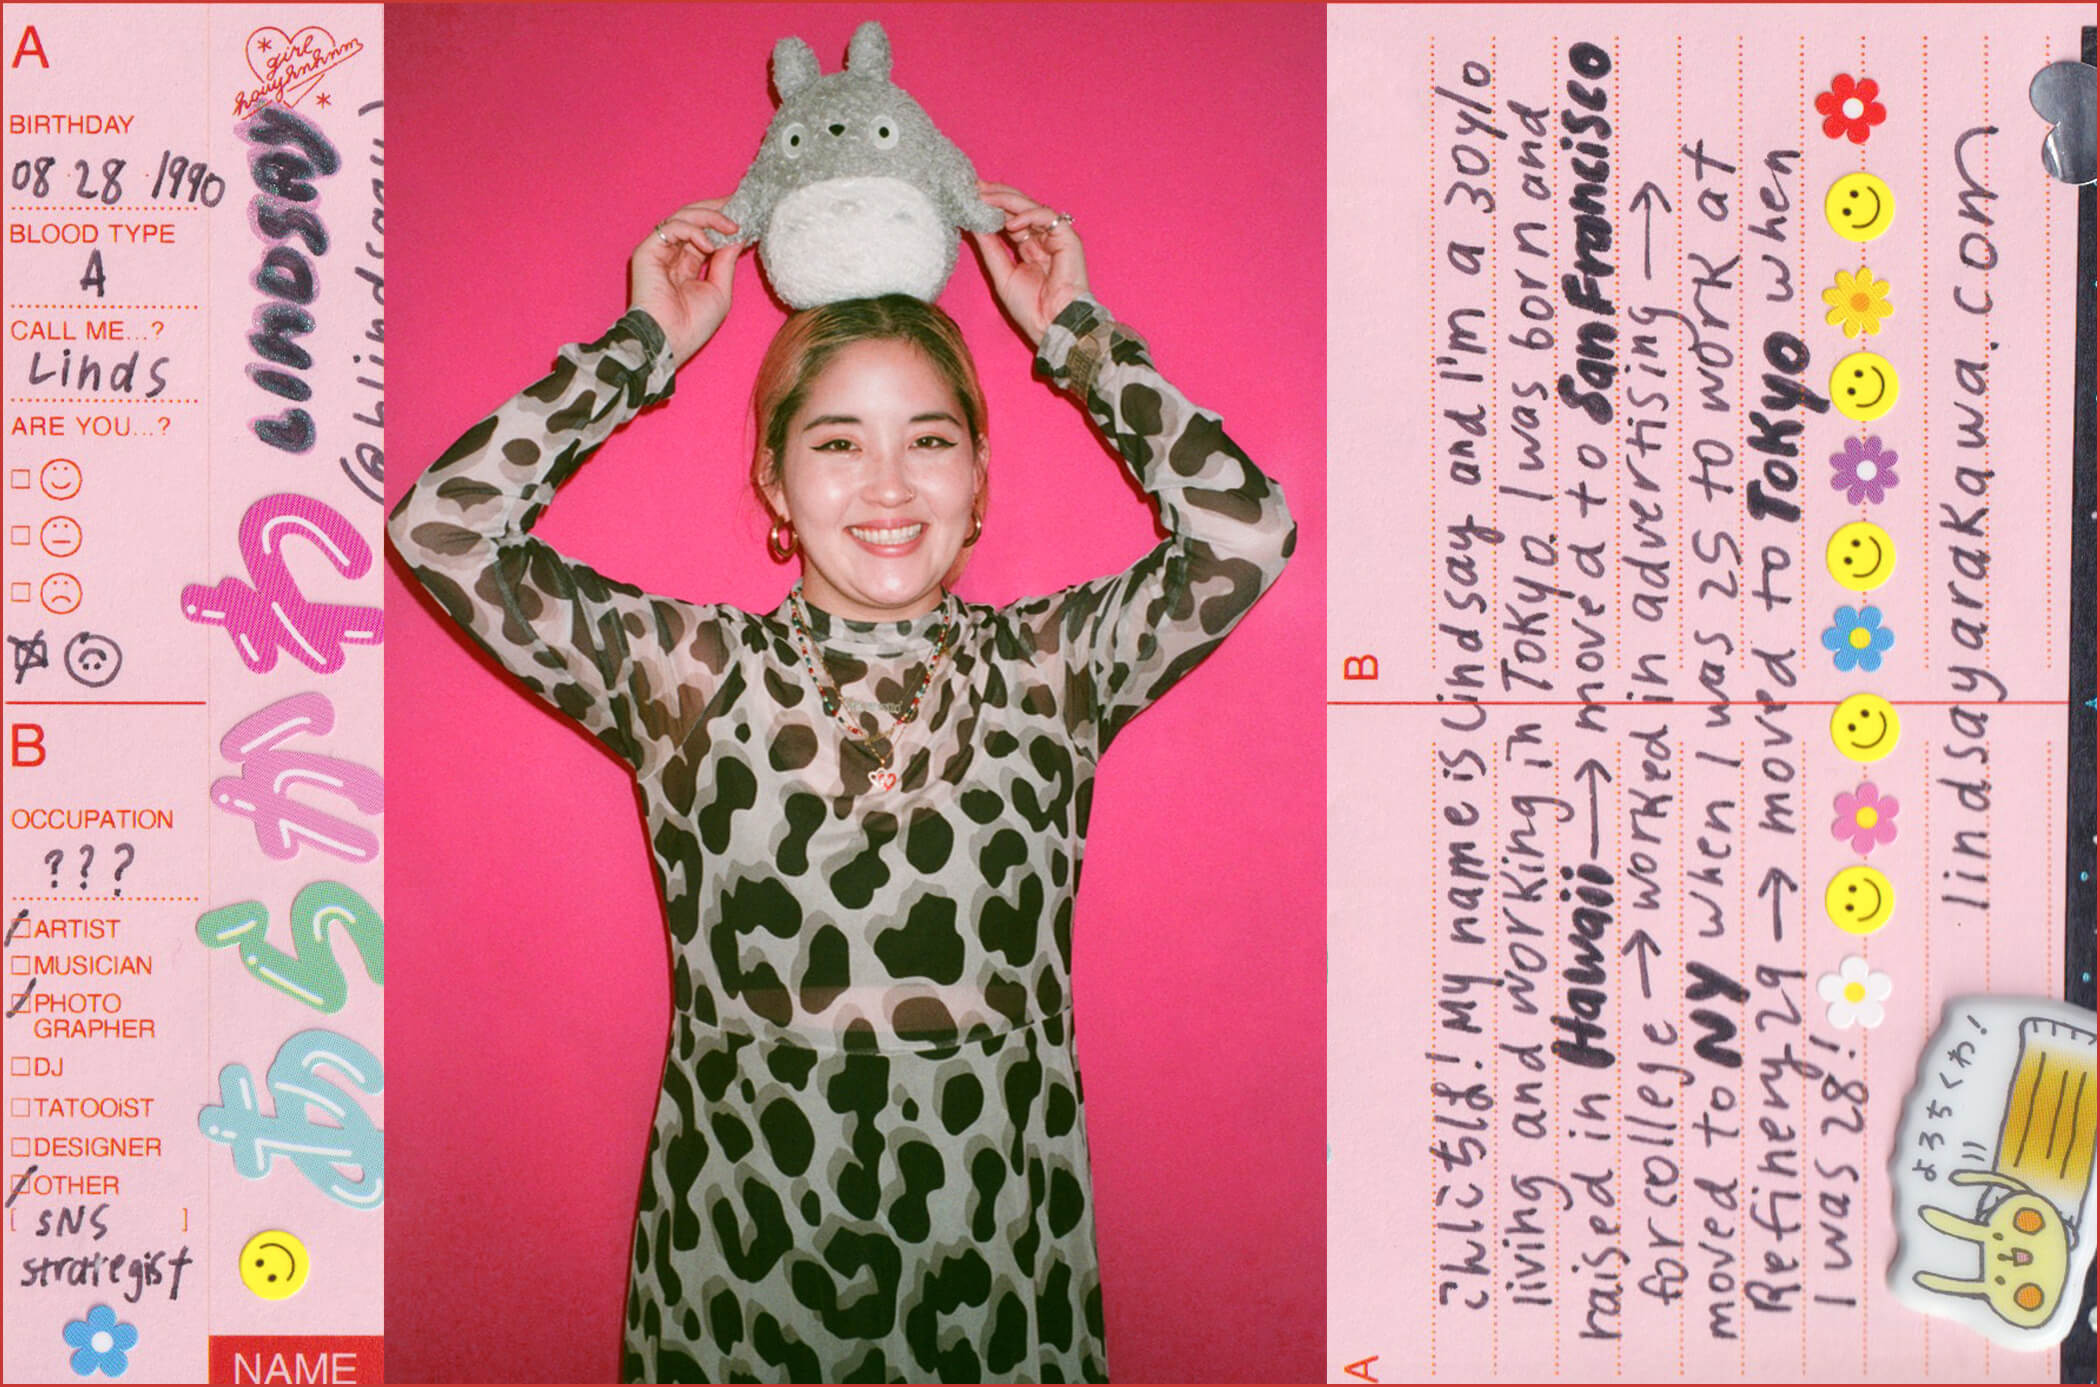 A
BIRTHDAY
08 28 1990
BLOOD TYPE
A
CALL ME...?
Linds
ARE YOU...?
B
OCCUPATION
???
ARTIST
MUSICIAN
PHOTO
GRAPHER
DJ
TATOOiST
DESIGNER
OTHER
[ SNS ]
strategist
girl
houyhnhnm
LINDSAY
あらかわ
NAME
A
B
こんにちは! My name is Lindsay and I'm a 30y/o
living and working in Tokyo. I was born and
raised in Hawaii → moved to San Francisco
for college → worked in advertising →
moved to NY when I was 25 to work at
Refinery 29 → moved to Tokyo when
I was 28!
lindsayarakawa.com
よろちくわ!